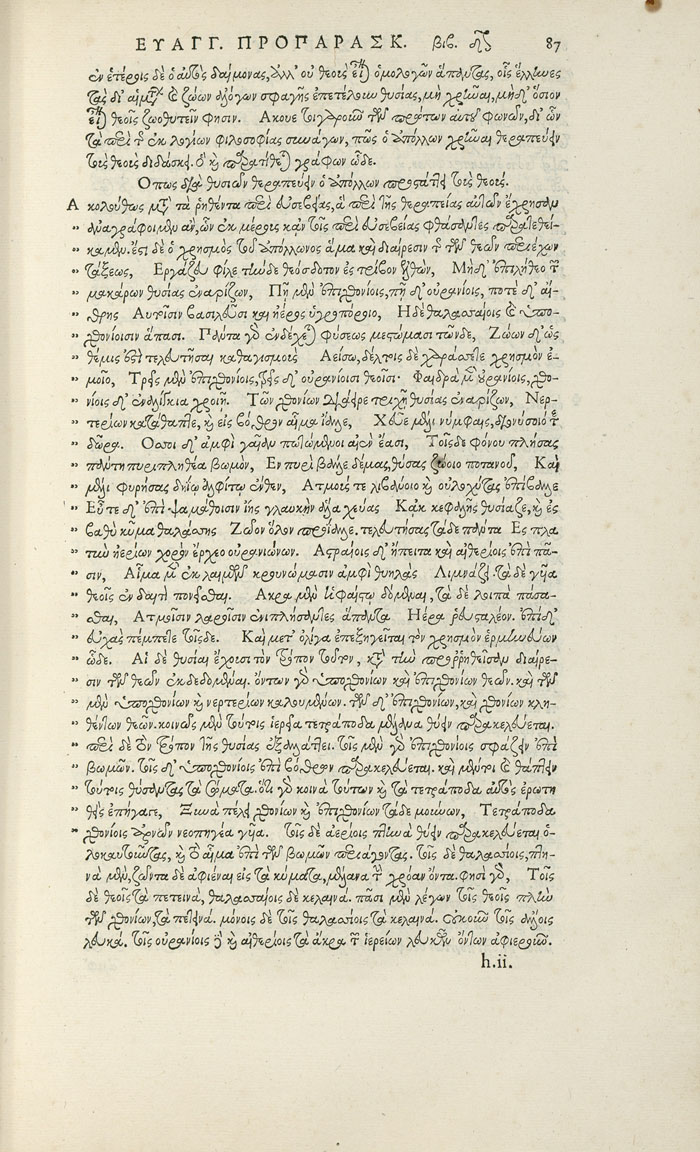 ΕΥΑΓΓ. ΠΡΟΠΑΡΑΣΚ. βιβ. δ΄ 87
ἐν ἑτέροις δὲ ὁ αὐτὸς δαίμονας, ἀλλ' οὐ θεοὺς εἶναι ὁμολογῶν ἅπαντας, οἷς ἕλληνες
τὰς δι' αἱμάτων καὶ ζώων ἀλόγων σφαγῆς ἐπετέλουν θυσίας, μὴ χρῆναι, μὴ δ' ὅσιον
εἶναι θεοῖς ζωοθυτεῖν φησιν. Ακουε τοιγαροῦν τῶν πρώτων αὐτοῦ φωνῶν, δι' ὧν
τὰ περὶ τῆς ἐκ λογίων φιλοσοφίας συνάγων, πῶς ὁ ἀπόλλων χρῆναι θεραπεύειν
τοὺς θεοὺς διδάσκει. ὃ καὶ παρατίθεται γράφων ὧδε.
Οπως διὰ θυσιῶν θεραπεύειν ὁ ἀπόλλων προστάττει τοὺς θεούς.
Α κολούθως μετὰ τὰ ῥηθέντα περὶ εὐσεβείας, ἃ περὶ τῆς θεραπείας αὐτῶν ἔχρησαν
ἀναγράφοιμεν ἂν, ὧν ἐκ μέρους κἂν τοῖς περὶ εὐσεβείας φθάσαντες παρατεθεί-
καμεν. ἔστι δὲ ὁ χρησμὸς τοῦ ἀπόλλωνος ἅμα καὶ διαίρεσιν τῆς τῶν θεῶν περιέχων
τάξεως, Εργάζευ φίλε τήνδε θεόσδοτον ἐς τρίβον ἐλθὼν, Μὴ δ' ἐπιλήθεο τῶν
μακάρων θυσίας ἐναρίζων, Πῆ μὲν ἐπιχθονίοις, πῆ δ' οὐρανίοις, ποτὲ δ' αἴ-
θρης Αυτοῖσιν βασιλεῦσι καὶ ἠέρος ὑγροπόροιο, Ηδὲ θαλασσαίοις καὶ ὑπο-
χθονίοισιν ἅπασι. Πάντα γὰρ ἐνδέχεται φύσεως μεστώμασι τῶνδε, Ζώων δ' ὡς
θέμις ἐστὶ τελευτῆσαι καθαγισμοὺς Αείσω, δέλτοις δὲ χαράσσετε χρησμὸν ἐ-
μοῖο, Τρεῖς μὲν ἐπιχθονίοις, τρεῖς δ' οὐρανίοισι θεοῖσι. Φαιδρὰ μὲν οὐρανίοις, χθο-
νίοις δ' ἐναλίγκια χροιῇ. Τῶν χθονίων διάειρε τριχῇ θυσίας ἐναρίζων, Νερ-
τερίων κατάθαπτε, καὶ εἰς βόθρον αἷμα ἴαλλε, Χεῦε μέλι νύμφαις, διονύσοιό τε
δῶρα. Οσσοι δ' ἀμφὶ γαῖαν πωτώμενοι αἰὲν ἔασι, Τοῖσδε φόνου πλήσας
πάντη πυριπληθέα βωμὸν, Εν πυρὶ βάλλε δέμας, θύσας ζώοιο ποτανοῦ, Καὶ
μέλι φυρήσας δηίῳ ἀλφίτῳ ἔνθεν, Ατμούς τε λιβάνοιο καὶ οὐλοχύτας ἐπίβαλλε
Εὖτε δ' ἐπὶ ψαμάθοισιν ἴῃς γλαυκὴν ἅλα χεύας Κὰκ κεφαλῆς θυσίαζε, καὶ ἐς
βαθὺ κῦμα θαλάσσης Ζῶον ὅλον προΐαλλε. τελευτήσας τάδε πάντα Ες πλα
τὺν ἠερίων χορὸν ἔρχεο οὐρανιώνων. Αστραίοις δ' ἤπειτα καὶ αἰθερίοις ἐπὶ πᾶ-
σιν, Αἷμα μὲν ἐκ λαιμῶν κρουνώμασιν ἀμφὶ θυηλὰς Λιμνάζει. τὰ δὲ γυῖα
θεοῖς ἐν δαιτὶ πονεῖσθαι. Ακρα μὲν ἡφαίστῳ δόμεναι, τὰ δὲ λοιπὰ πάσα-
σθαι, Ατμοῖσιν λαροῖσιν ἐνιπλήσαντες ἅπαντα Ηέρα ῥευσταλέον. ἐπὶ δ'
εὐχὰς πέμπετε τοῖσδε. Καὶ μετ' ὀλίγα ἐπεξηγεῖται τὸν χρησμὸν ἑρμηνεύων
ὧδε. Αἱ δὲ θυσίαι ἔχοισι τὸν τρόπον τοῦτον, κατὰ τὴν προρρηθεῖσαν διαίρε-
σιν τῶν θεῶν ἐκδεδομέναι. ὄντων γὰρ ὑποχθονίων καὶ ἐπιχθονίων θεῶν. καὶ τῶν
μὲν ὑποχθονίων καὶ νερτερίων καλουμένων. τῶν δ' ἐπιχθονίων, καὶ χθονίων κλη-
θέντων θεῶν. κοινῶς μὲν τούτοις ἱερεῖα τετράποδα μέλανα θύειν παρακελεύεται.
περὶ δὲ τὸν τρόπον τῆς θυσίας ἐξαλλάττει. τοῖς μὲν γὰρ ἐπιχθονίοις σφάζειν ἐπὶ
βωμῶν. τοῖς δ' ὑποχθονίοις ἐπὶ βόθρων παρακελεύεται. καὶ μέντοι καὶ θάπτειν
τούτοις θύσαντας τὰ σώματα. ὅτι γὰρ κοινὰ τούτων καὶ τὰ τετράποδα αὐτὸς ἐρωτη
θεὶς ἐπήγαγε, Ξυνὰ πέλει χθονίων καὶ ἐπιχθονίων τάδε μούνων, Τετράποδα
χθονίοις ἀρνῶν νεοπηγέα γυῖα. τοῖς δὲ ἀερίοις πτηνὰ θύειν παρακελεύεται ὁ-
λοκαυτοῦντας, καὶ τὸ αἷμα ἐπὶ τῶν βωμῶν περιάγοντας. τοῖς δὲ θαλασσίοις, πτη-
νὰ μὲν, ζῶντα δὲ ἀφιέναι εἰς τὰ κύματα, μέλανα τὴν χροιὰν ὄντα. φησὶ γὰρ, Τοῖς
δὲ θεοῖς τὰ πετεινὰ, θαλασσαίοις δὲ κελαινά. πᾶσι μὲν λέγων τοῖς θεοῖς πλὴν
τῶν χθονίων, τὰ πετεινά. μόνοις δὲ τοῖς θαλασσίοις τὰ κελαινά. οὐκοῦν τοῖς ἄλλοις
λευκά. τοῖς οὐρανίοις δὲ καὶ αἰθερίοις τὰ ἄκρα τῶν ἱερείων λευκῶν ὄντων ἀφιεροῦν.
h.ii.